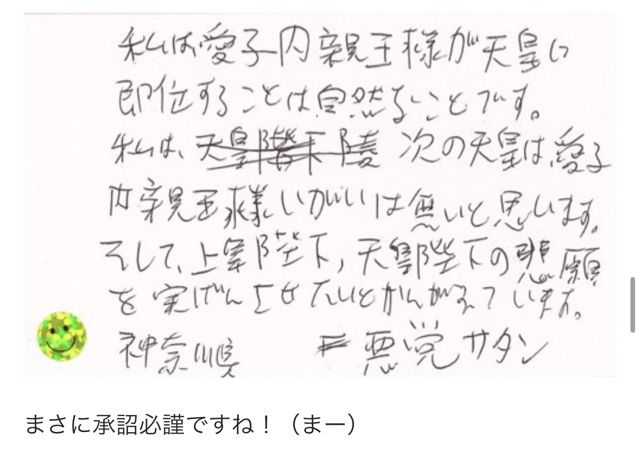 私は愛子内親王様が天皇に
即位することは自然なことです。
私は、天皇陛下 次の天皇は、愛子
内親王様いがいは無いと思います。
そして、上皇陛下，天皇陛下の悲願
を実げんさせたいとかんがえています。
神奈川県 悪党サタン
まさに承詔必謹ですね！（まー）